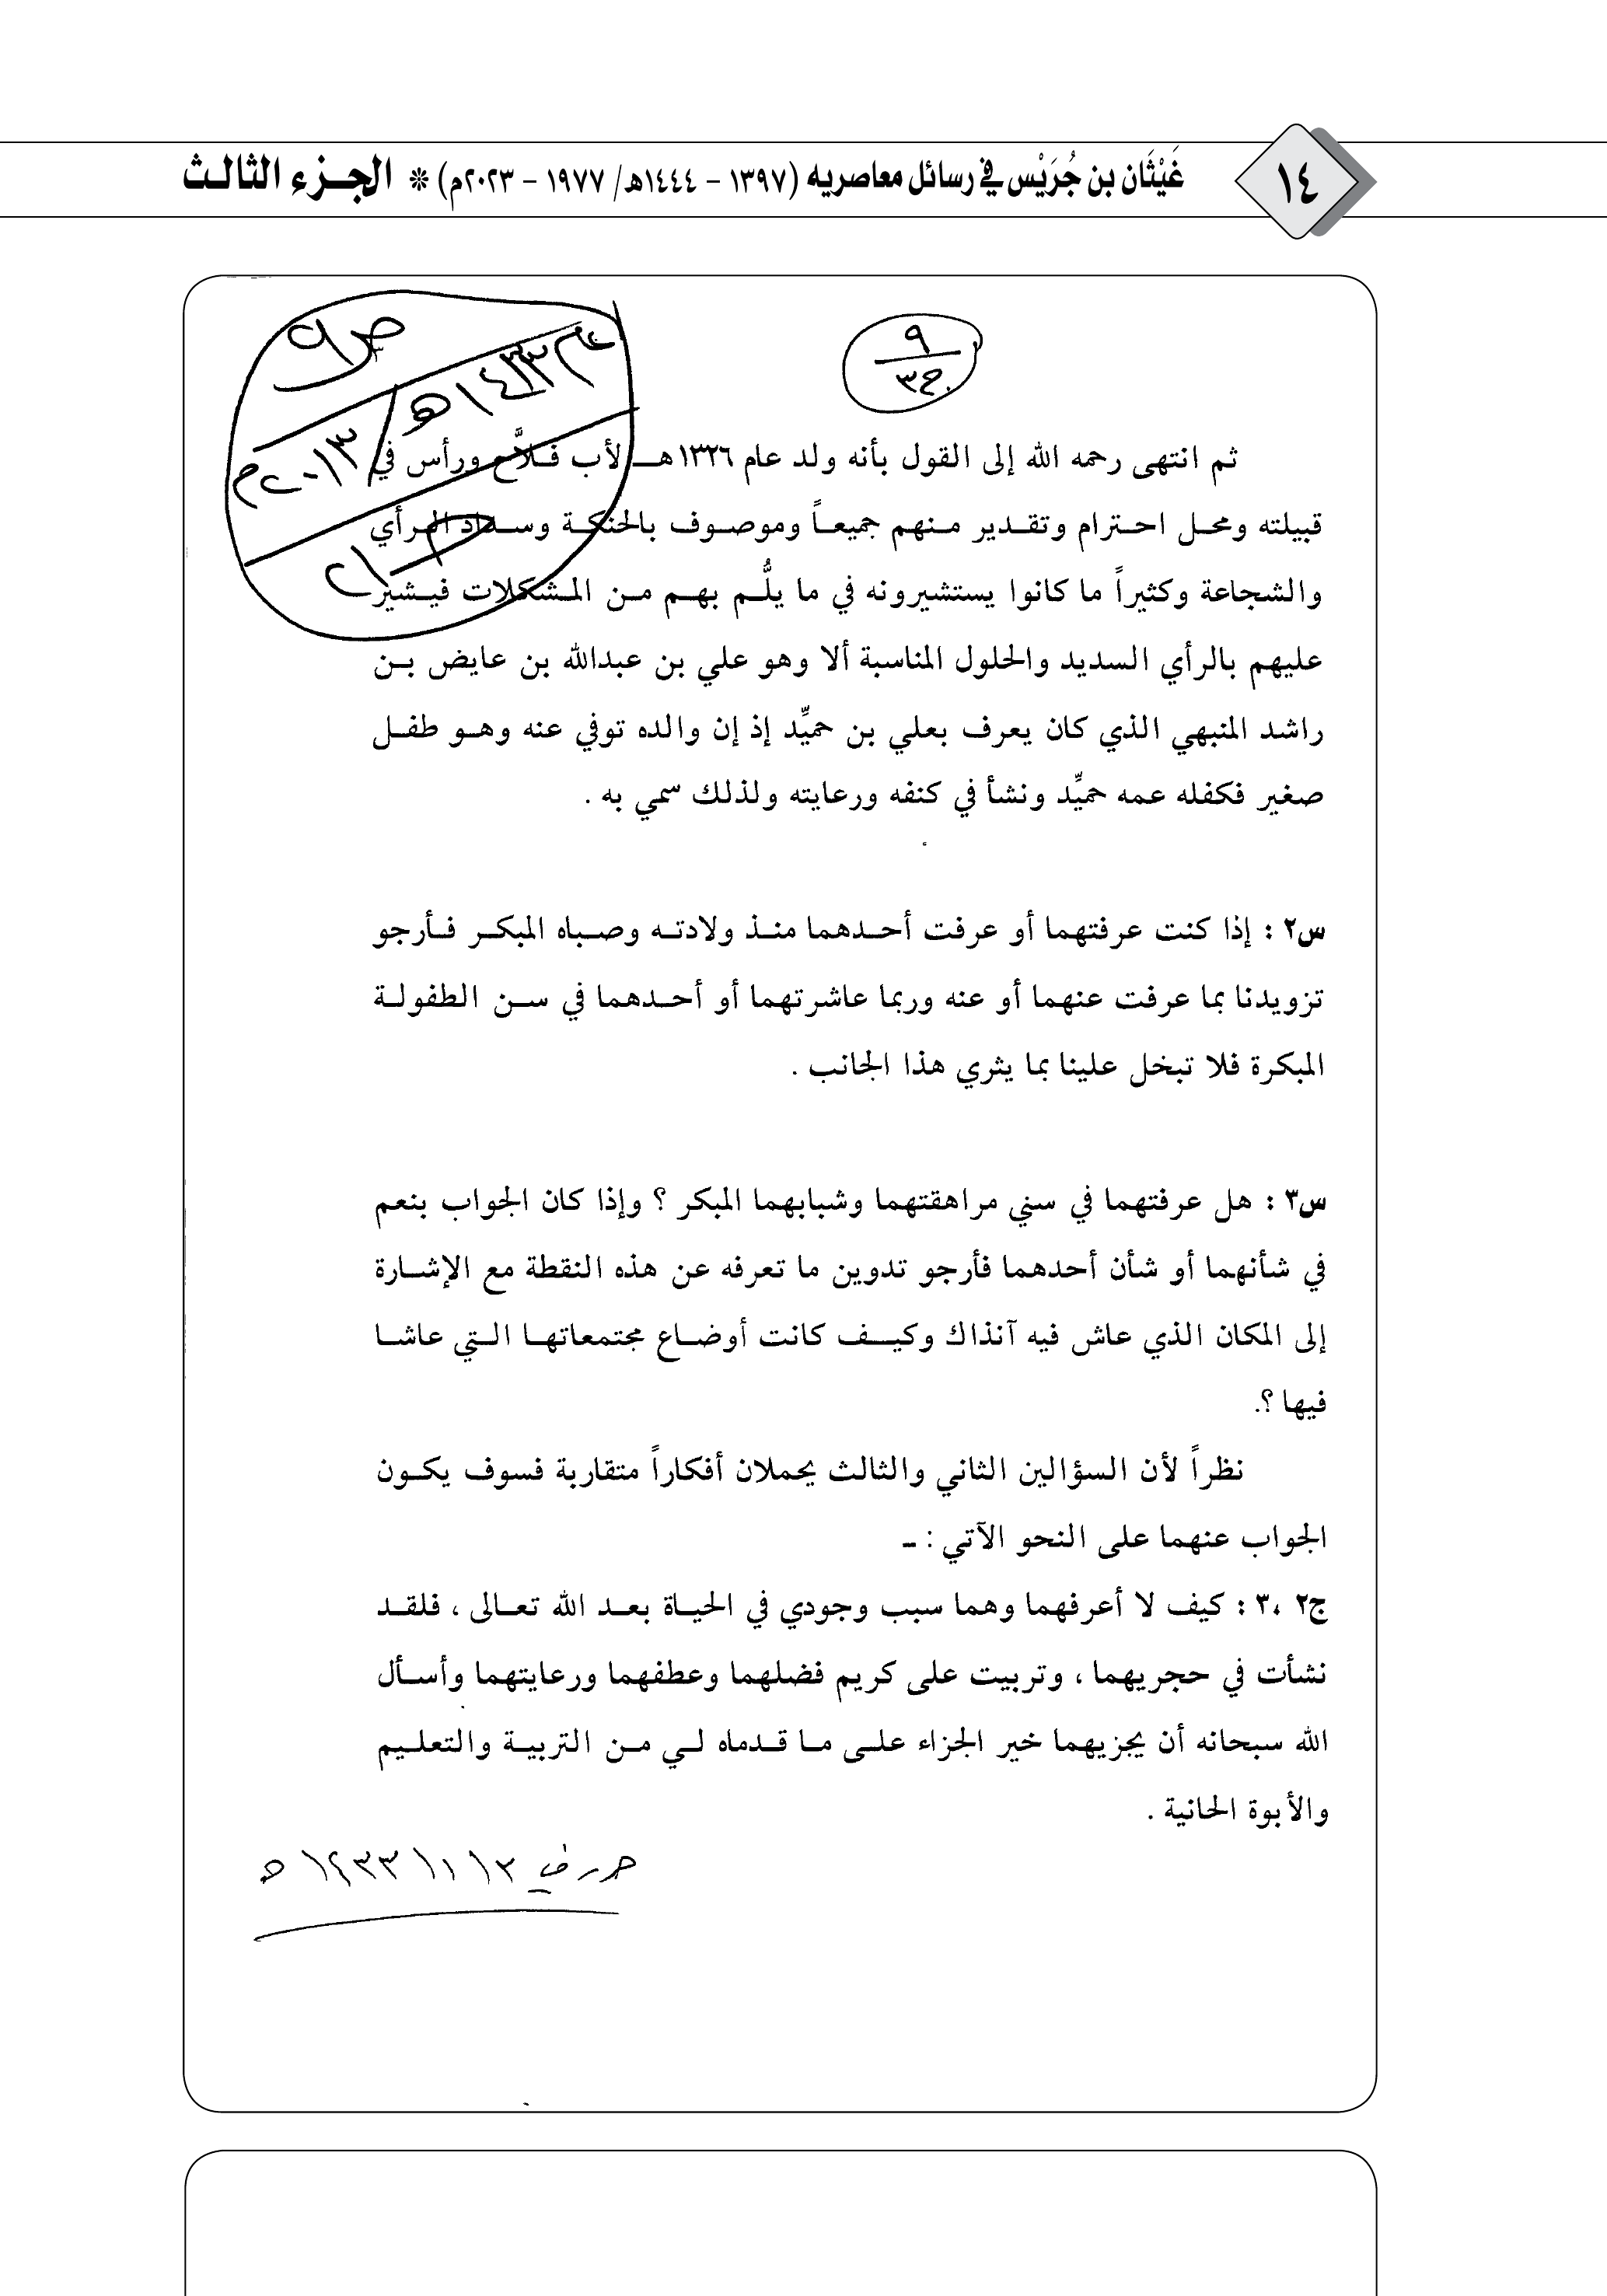 ١٤
غَيْثَان بن جُرَيْس في رسائل معاصريه (١٣٩٧ - ١٤٤٤هـ/ ١٩٧٧ - ٢٠٢٣م) * الجـزء الثالـث
٩
ج٣
ص٩
عام ١٤٣٣هـ
٢٠١٣م
ثم انتهى رحمه الله إلى القول بأنه ولد عام ١٣٢٦هـ لأب فلاَّح ورأس في
قبيلته ومحل احترام وتقدير منهم جميعاً وموصوف بالحنكة وسداد الرأي
والشجاعة وكثيراً ما كانوا يستشيرونه في ما يلُّم بهم من المشكلات فيشير
عليهم بالرأي السديد والحلول المناسبة ألا وهو علي بن عبدالله بن عايض بن
راشد المنبهي الذي كان يعرف بعلي بن حميِّد إذ إن والده توفي عنه وهو طفل
صغير فكفله عمه حميِّد ونشأ في كنفه ورعايته ولذلك سمي به .
س٢ : إذا كنت عرفتهما أو عرفت أحدهما منذ ولادته وصباه المبكر فأرجو
تزويدنا بما عرفت عنهما أو عنه وربما عاشرتهما أو أحدهما في سن الطفولة
المبكرة فلا تبخل علينا بما يثري هذا الجانب .
س٣ : هل عرفتهما في سني مراهقتهما وشبابهما المبكر ؟ وإذا كان الجواب بنعم
في شأنهما أو شأن أحدهما فأرجو تدوين ما تعرفه عن هذه النقطة مع الإشارة
إلى المكان الذي عاش فيه آنذاك وكيف كانت أوضاع مجتمعاتها التي عاشا
فيها ؟.
نظراً لأن السؤالين الثاني والثالث يحملان أفكاراً متقاربة فسوف يكون
الجواب عنهما على النحو الآتي : ـ
ج٢ ،٣ : كيف لا أعرفهما وهما سبب وجودي في الحياة بعد الله تعالى ، فلقد
نشأت في حجريهما ، وتربيت على كريم فضلهما وعطفهما ورعايتهما وأسأل
الله سبحانه أن يجزيهما خير الجزاء على ما قدماه لي من التربية والتعليم
والأبوة الحانية .